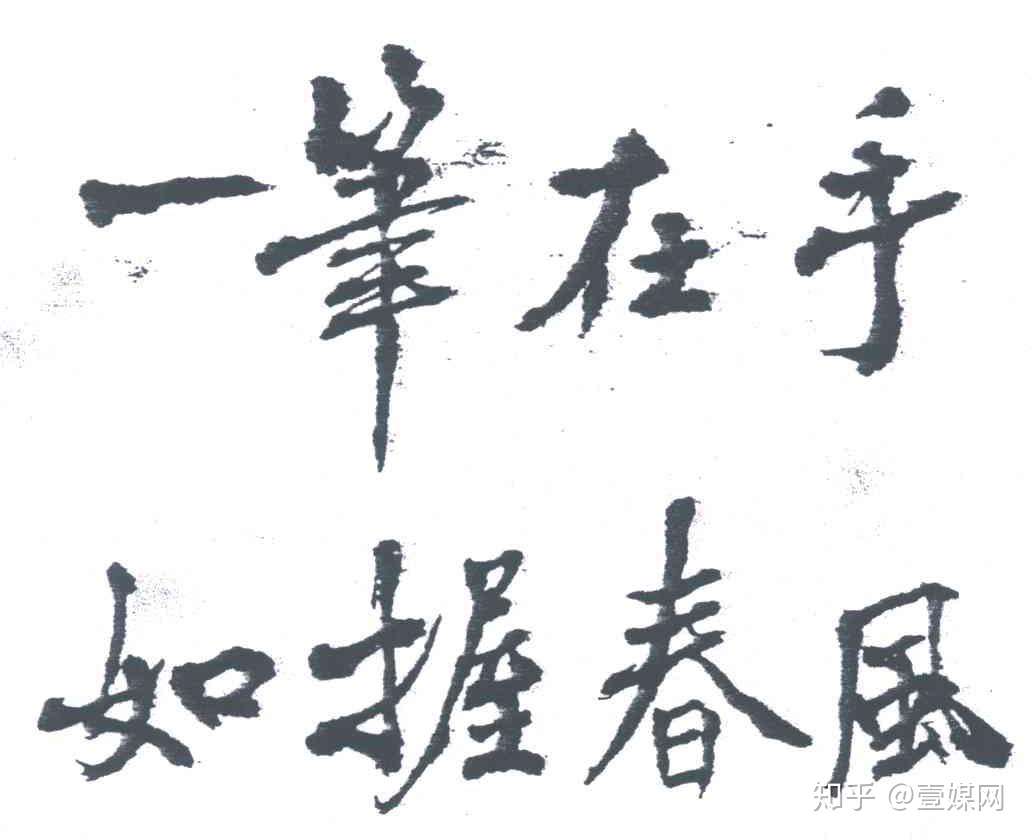 一筆在手
如握春風
知乎 @壹媒网